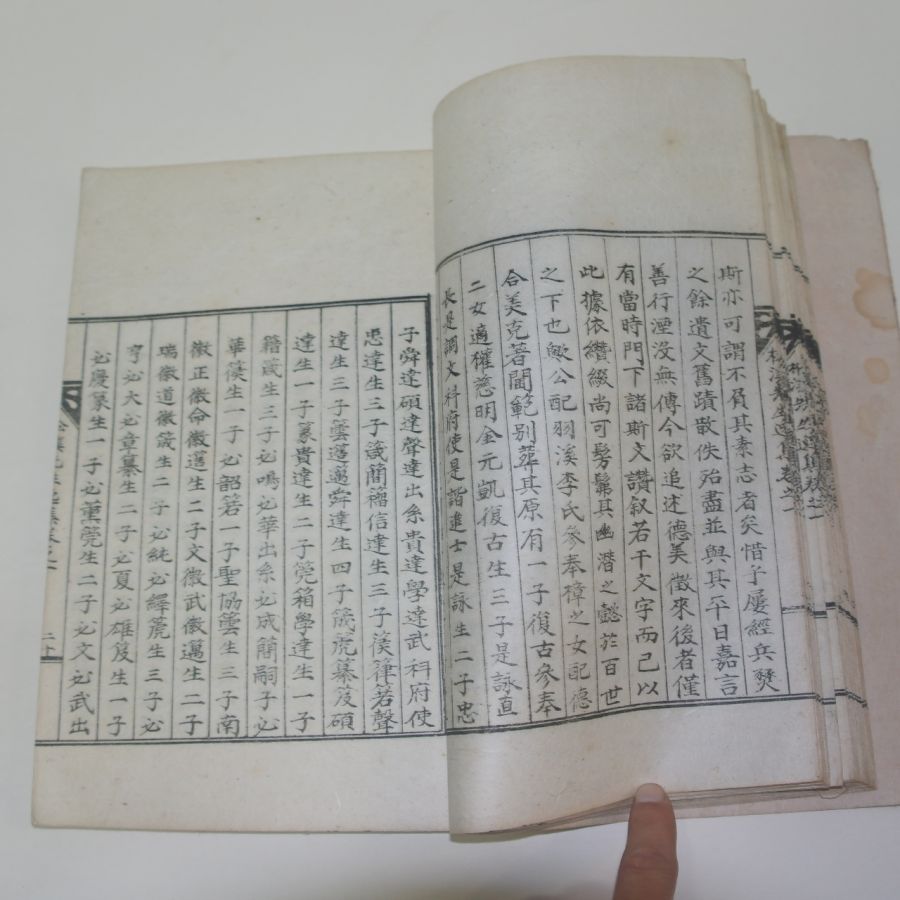 斯亦可謂不負其素志者矣惜乎屢經兵燹
之餘遺文舊蹟散佚殆盡並與其平日嘉言
善行湮沒無傳今欲追述德美徵來後者僅
有當時門下諸斯文讚叙若干文字而已以
此據依纘綴尚可髣髴其幽潛之懿於百世
之下也敏公配羽溪李氏參奉樟之女配德
合美克著閫範別葬其原有一子復古參奉
二女適權慈明金元凱復古生三子是詠直
長是調文科府使是諧進士是詠生二子忠
子舜達碩達聲達出系貴達學達武科府使
忠達生三子箴蔄 信達生三子 若聲
達生三子雲邁邁舜達生四子 虎 碩
達生一子篆貴達生二子筦箱學達生一子
籍 生三子必鳴必華出系必成 嗣子必
華 生一子必韶箬一子聖協雲生三子南
徵正徵命徵邁生二子文徵武徵邁生二子
瑞徵道徵箴生二子必純必繹 生三子必
亨必大必章 生二子必夏必雄 生一子
必慶篆生一子必重筦生二子必文必武出